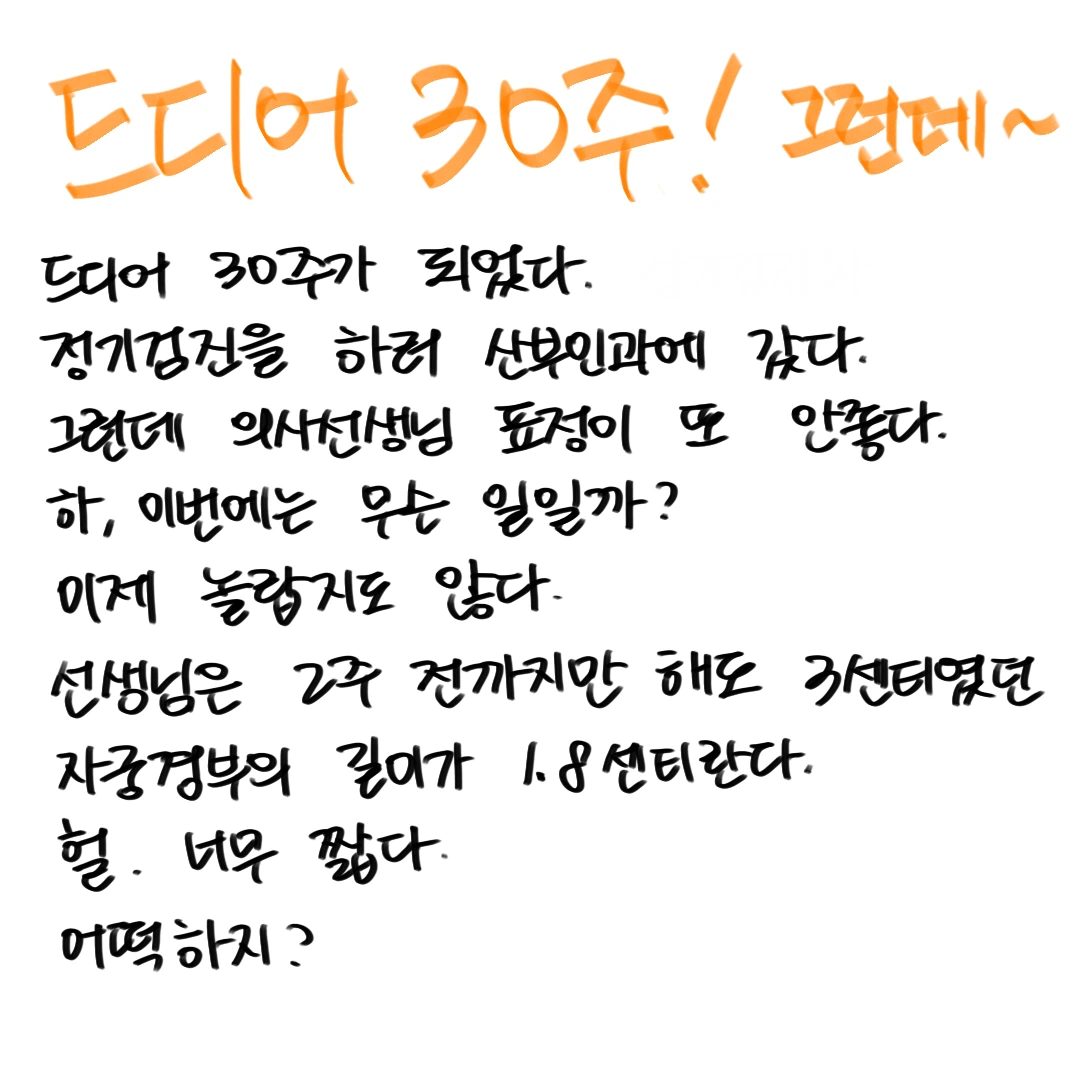 드디어 30주! 그런데~
드디어 30주가 되었다.
정기검진을 하러 산부인과에 갔다.
그런데 의사선생님 표정이 또 안좋다.
하, 이번에는 무슨 일일까?
이제 놀랍지도 않다.
선생님은 2주 전까지만 해도 3센티였던
자궁경부의 길이가 1.8센티란다.
헐. 너무 짧다.
어떡하지?